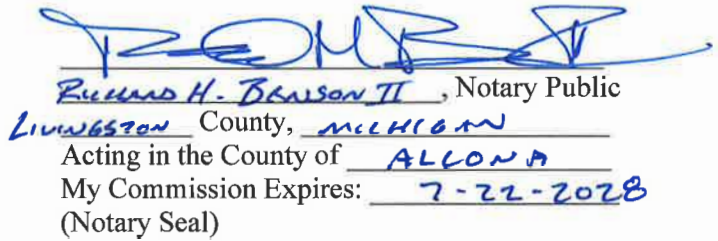 RICHARD H. BENSON II, Notary Public
LIVINGSTON County, MICHIGAN
Acting in the County of ALCONA
My Commission Expires: 7-22-2028
(Notary Seal)